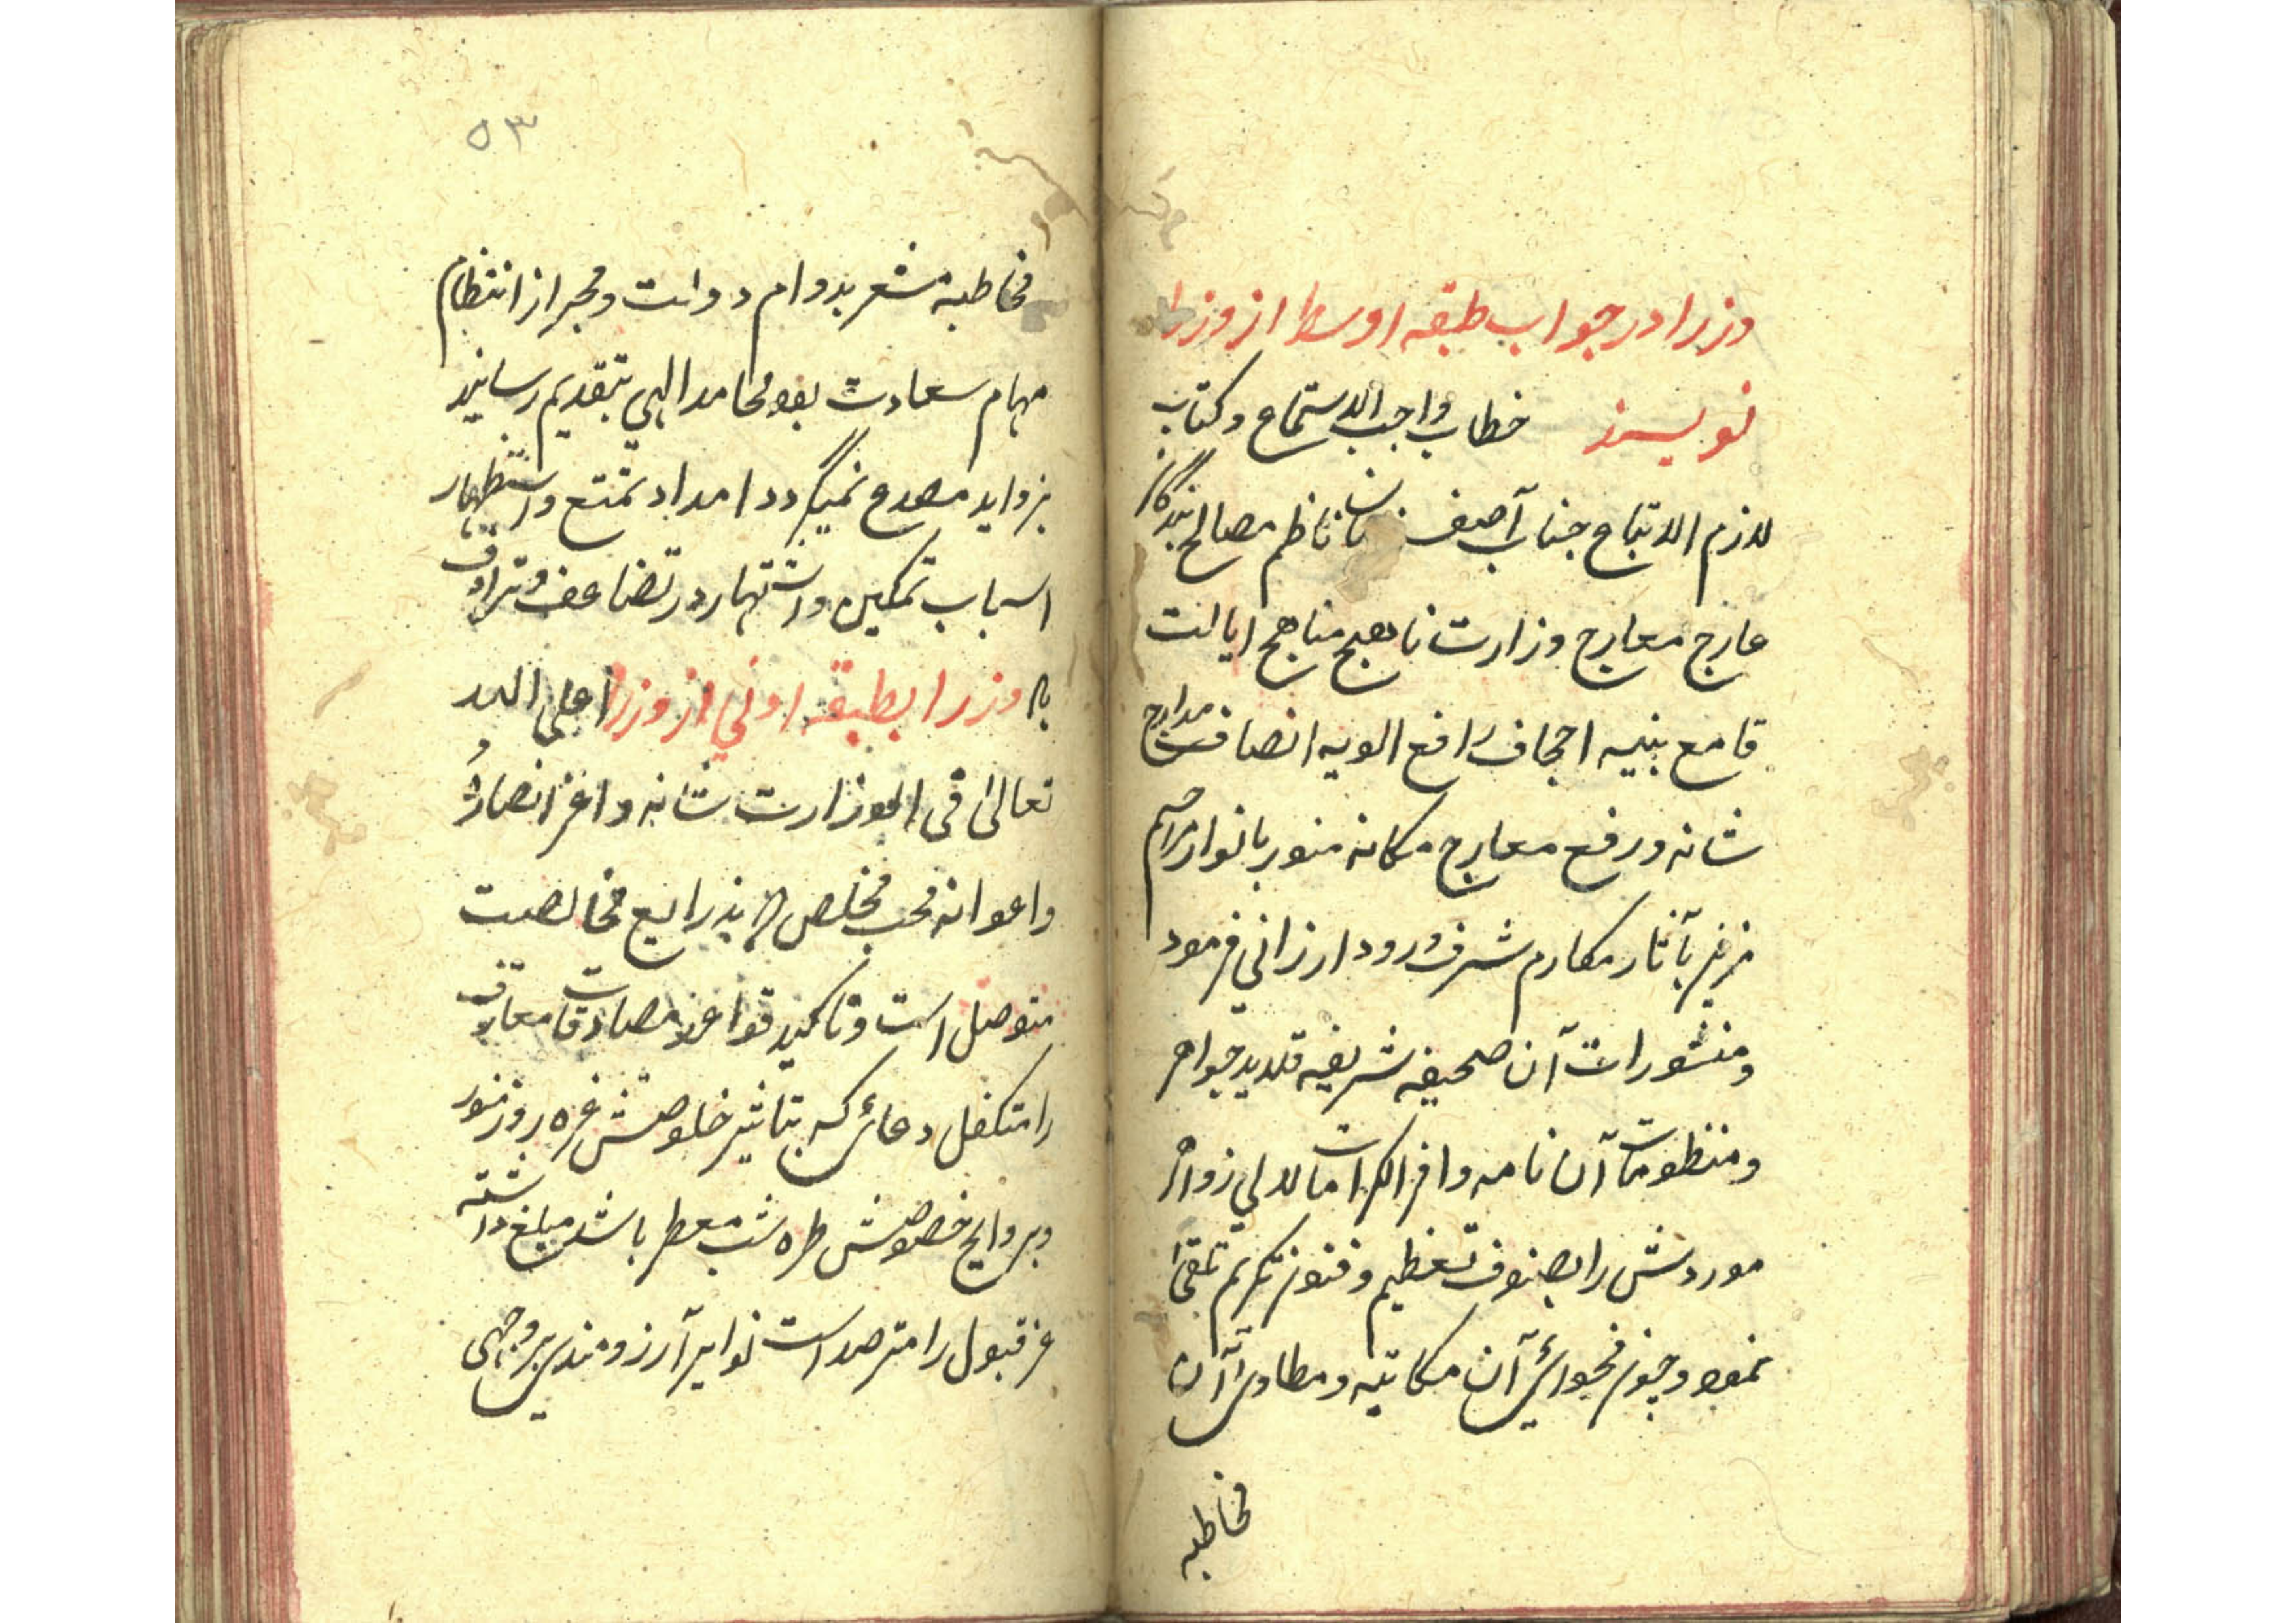 وزرا در جواب طبقه اوسط از وزرا
نویسند خطاب واجب الاستماع و کتاب
لازم الاتباع جناب آصف ناظم مصالح بندگان
عارج معارج وزارت ناهج مناهج ایالت
قامع بنیه اجحاف رافع الویه انصاف مدارج
شانه ورفع معارج مکانه منور بانوار مراحم
مزین بآثار مکارم شرف ورود ارزانی فرمود
ومنشورات آن صحیفه شریفه قلاید جواهر
ومنظومات آن نامه وافر الکرامات لالی زواهر
موردش را بصنوف تعظیم وفنون تکریم تلقی
نمود وچون فحوای آن مکاتبه ومطاوی آن
مخاطبه
۵۳
مخاطبه مشعر بدوام دولت ومخبر از انتظام
مهام سعادت بود محامد الهی بتقدیم رسانید
بزواید مصدع نمیگردد امداد تمتع واستظهار
اسباب تمکین واشتهار در تضاعف وترادف
باد وزرا بطبقه اولی از وزرا اعلی الله
تعالی فی الوزارت شانه واعز انصاره
واعوانه محب مخلص که بذرایع مخالصت
متوصل است وتاکید قواعد مصادقت معارف
را متکفل دعائی که بتاثیر خلوصش غره روز منور
وبروایح خصوصش طره شب معطر باشد مبلغ داشته
عز قبول را مترصد است نوایر آرزومندی بروجهی